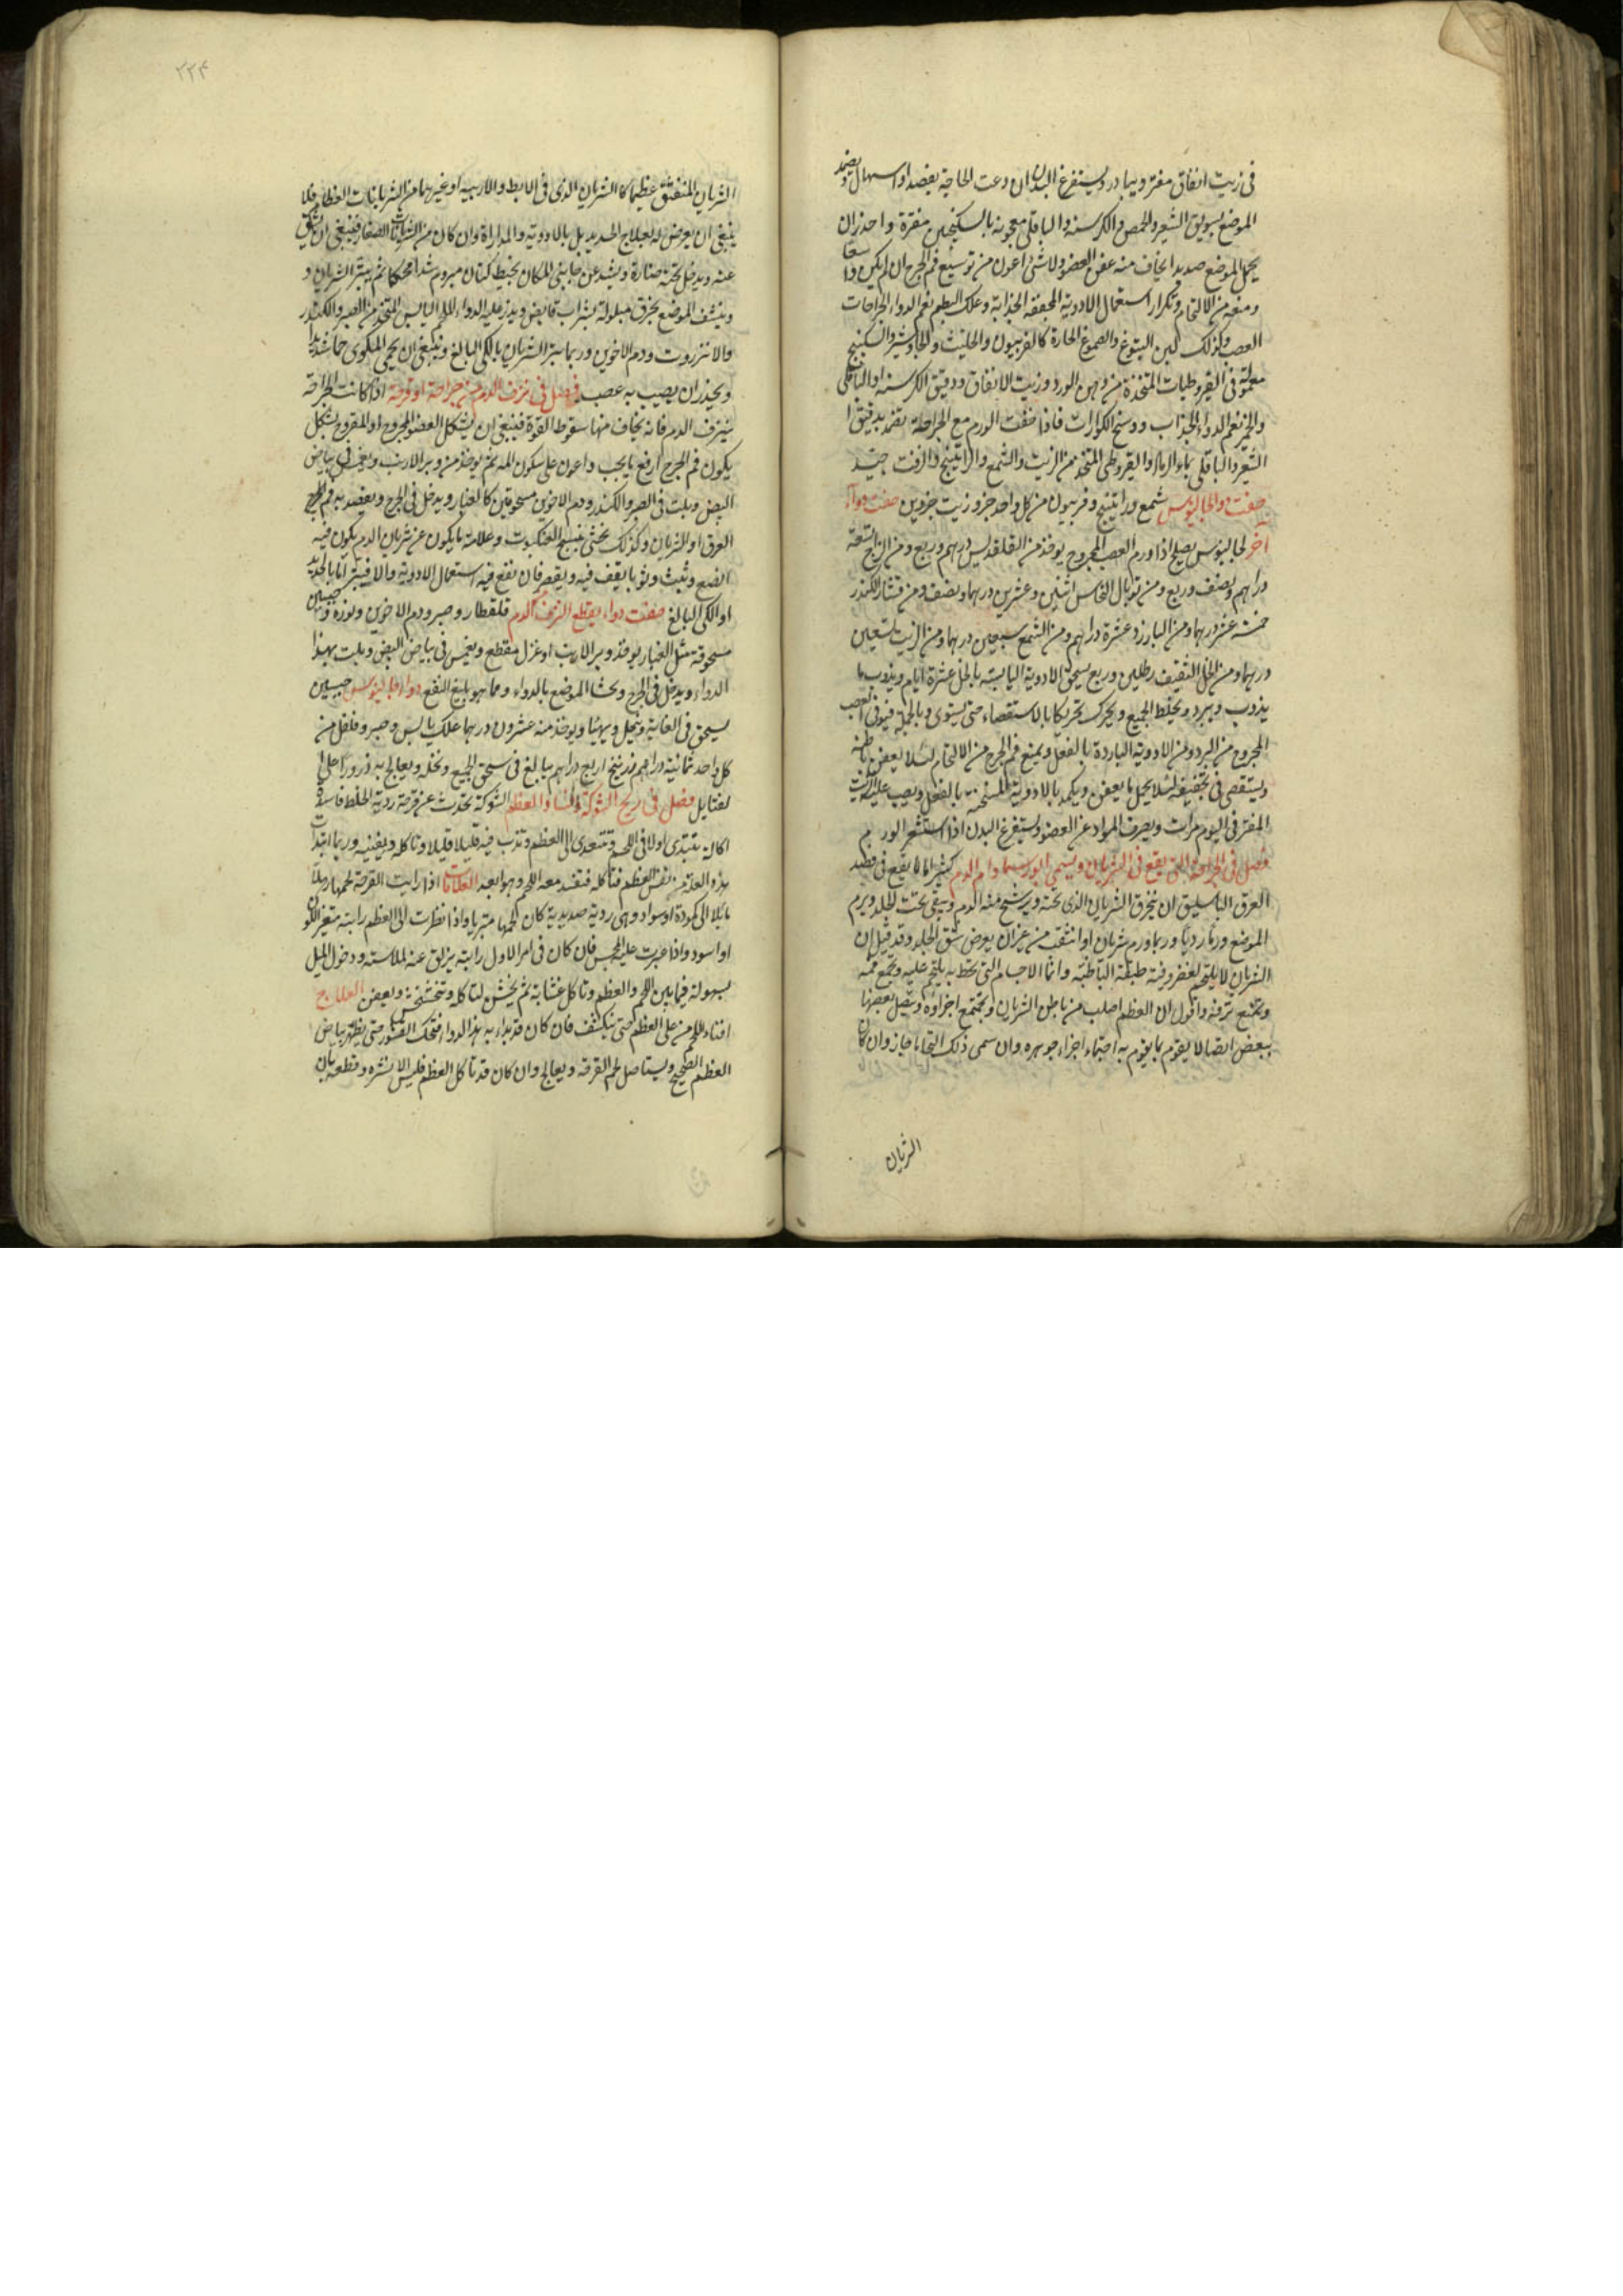 فى زيت انفاق مفتر ويبادر ويستفرغ البدن ان دعت الحاجة بفصد او اسهال ويضمد
الموضع بسويق الشعير والحمص والكرسنه والباقلى معجونة بالسكنجبين مفترة واحذر ان
يحمل الموضع صديدا يخاف منه عفن العضو ولا شئ اعون من توسيع فم الجرح ان لم يكن واسعا
ومنعه من الالتحام وتكرار استعمال الادوية المجففة الجذابة وعلك البطم نعم الدواء لجراحات
العصب وكذلك لبن اليتوع والصموغ الحارة كالفربيون والحلتيت والجاوشير والسكبينج
معمولة فى القيروطيات المتخذة من دهن الورد وزيت الانفاق ودقيق الكرسنه او الباقلى
والخمير نعم الدواء الجذاب ووسخ الكوارات فاذا خفت الورم مع الجراحة تضمد بدقيق
الشعير والباقلى بماء الرماد والقيروطى المتخذ من الزيت والشمع والراتينج والزفت جيد
صفت دوا لجالينوس شمع وراتينج وفربيون من كل واحد جزو زيت جزوين صفت دواء
آخر لجالينوس يصلح اذا ورم العصب المجروح يوخذ من القلقديس درهم وربع ومن الزاج تسعة
دراهم ونصف وربع ومن توبال النحاس اثنين وعشرين درهما ونصف ومن قشار الكندر
خمسة عشر درهما ومن البارزد عشرة دراهم ومن الشمع سبعين درهما ومن الزيت تسعين
درهما ومن الخل الثقيف رطلين وربع يسحق الادوية اليابسة بالخل عشرة ايام ويذوب ما
يذوب ويبرد ويخلط الجميع ويحرك تحريكا بالاستقصاء حتى يستوى وبالجملة فيوقى العصب
المجروح من البرد ومن الادوية الباردة بالفعل ويمنع فم الجرح من الالتحام لئلا يعفن باطنه
ويستقصى فى تجفيفه لئلا يحمل ما يعفن ويكمد بالادوية المسخنة بالفعل ويصب عليه الزيت
المفتر فى اليوم مرات ويصرف المواد عن العضو ويستفرغ البدن اذا استشعر الورم
فصل فى الجراحة التى يقع فى الشريان ويسمى ام الدم كثيرا ما يقع فى فصد
العرق الباسليق ان ينخرق الشريان الذى تحته ويرشح منه الدم ويبقى تحت الجلد ويرم
الموضع ورما رديا وربما ورم شريان او انشقت من غير ان يعرض شق الجلد وقد قيل ان
الشريان لا يلتحم لغضروفية طبقته الباطنة وانما الاجسام التى تحيط به يلتحم عليه ويجمع فمه
ويمنع نزفه واقول ان العظم اصلب من باطن الشريان ويجتمع اجزاؤه ويتصل بعضها
ببعض اتصالا يقوم ما يقوم به اجتماع اجزاء جوهره وان سمى ذلك التحاما جاز وان كان
الشريان
٢٢٤
الشريان المنفتق عظيما كالشريان الذى فى الابط والاربيه او غيرهما من الشريانات العظام فلا
ينبغى ان يعرض له بعلاج الحديد بل بالادوية والمداراة وان كان من الشريانات الصغار فينبغى ان يشق
عنه ويدخل تحته صنارة ويشد عن جانبى المكان بخيط كتان مبروم شدا محكما ثم يبتر الشريان و
وينشف الموضع بخرق مبلولة بشراب قابض ويذر عليه الدواء الملحم اليابس المتخذ من الصبر والكندر
والانزروت ودم الاخوين وربما بتر الشريان بالكى البالغ وينبغى ان يحمى المكوى حما شديدا
ويحذر ان يصيب به عصب فصل فى نزف الدم من جراحة او قرحة اذا كانت الجراحة
ينزف الدم فانه يخاف منها سقوط القوة فينبغى ان يشكل العضو المجروح او المقروح بشكل
يكون فم الجرح ارفع ما يجب واعون على سكون المه ثم يوخذ من وبر الارنب ويغمس فى بياض
البيض ويلت فى الصبر والكندر ودم الاخوين مسحوقين كالغبار ويدخل فى الجرح ويعصب به فم الجرح
العرق او الشريان وكذلك يحشى بنسج العنكبوت وعلامة ما يكون عن شريان الدم يكون فيه
انصع وثبت وثوبا يقف فيه ويقصر فان نفع فيه استعمال الادوية والا فيبتر اما بالحديد
او الكى البالغ صفت دواء يقطع النزف الدم قلقطار وصبر ودم الاخوين ونورة وجبسين
مسحوقة مثل الغبار يوخذ وبر الارنب او غزل مقطع ويغمس فى بياض البيض ويلت بهذا
الدواء ويدخل فى الجرح وحشا الموضع بالدواء ومما هو بليغ النفع دواء جالينوس جبسين
يسحق فى الغاية وينخل ويهيئا ويوخذ منه عشرون درهما علك يابس وصبر وفلفل من
كل واحد ثمانية دراهم زرنيخ اربع دراهم يبالغ فى سحق الجميع ونخله ويعالج به ذرورا على
لفتايل فصل فى ريح الشوكة وفساد العظم الشوكة تحدث عن قرحة ردية الخلط فاسدة
اكالة تبتدى اولا فى اللحم وتتعدى الى العظم وتدب فيه قليلا قليلا وتاكله ويفنيه وربما ابتدات
هذه العلة من نفس العظم فتاكله فتفسد معه اللحم وهو ابعد العلامات اذا رايت القرحة لحمها رهلا
مائلا الى كمودة او سواد وهى ردية صديدية كان لحمها متبريا واذا نظرت الى العظم رايته متغير اللون
او اسود واذا عبرت عليه المجس فان كان فى امر الاول رايته يزلق عنه لملاسته ودخول الميل
بسهولة فيما بين اللحم والعظم وتاكل غشائه ثم يخشن لتاكله وتخشخش ويعفن العلاج
افناء اللحم من على العظم حتى ينكشف فان كان قد بداء به هذا الدواء فتحك القشور حتى يظهر بياض
العظم الصحيح ويستاصل لحم القرحة ويعالج وان كان قد تاكل العظم فليس الا نشره وقطعه بان